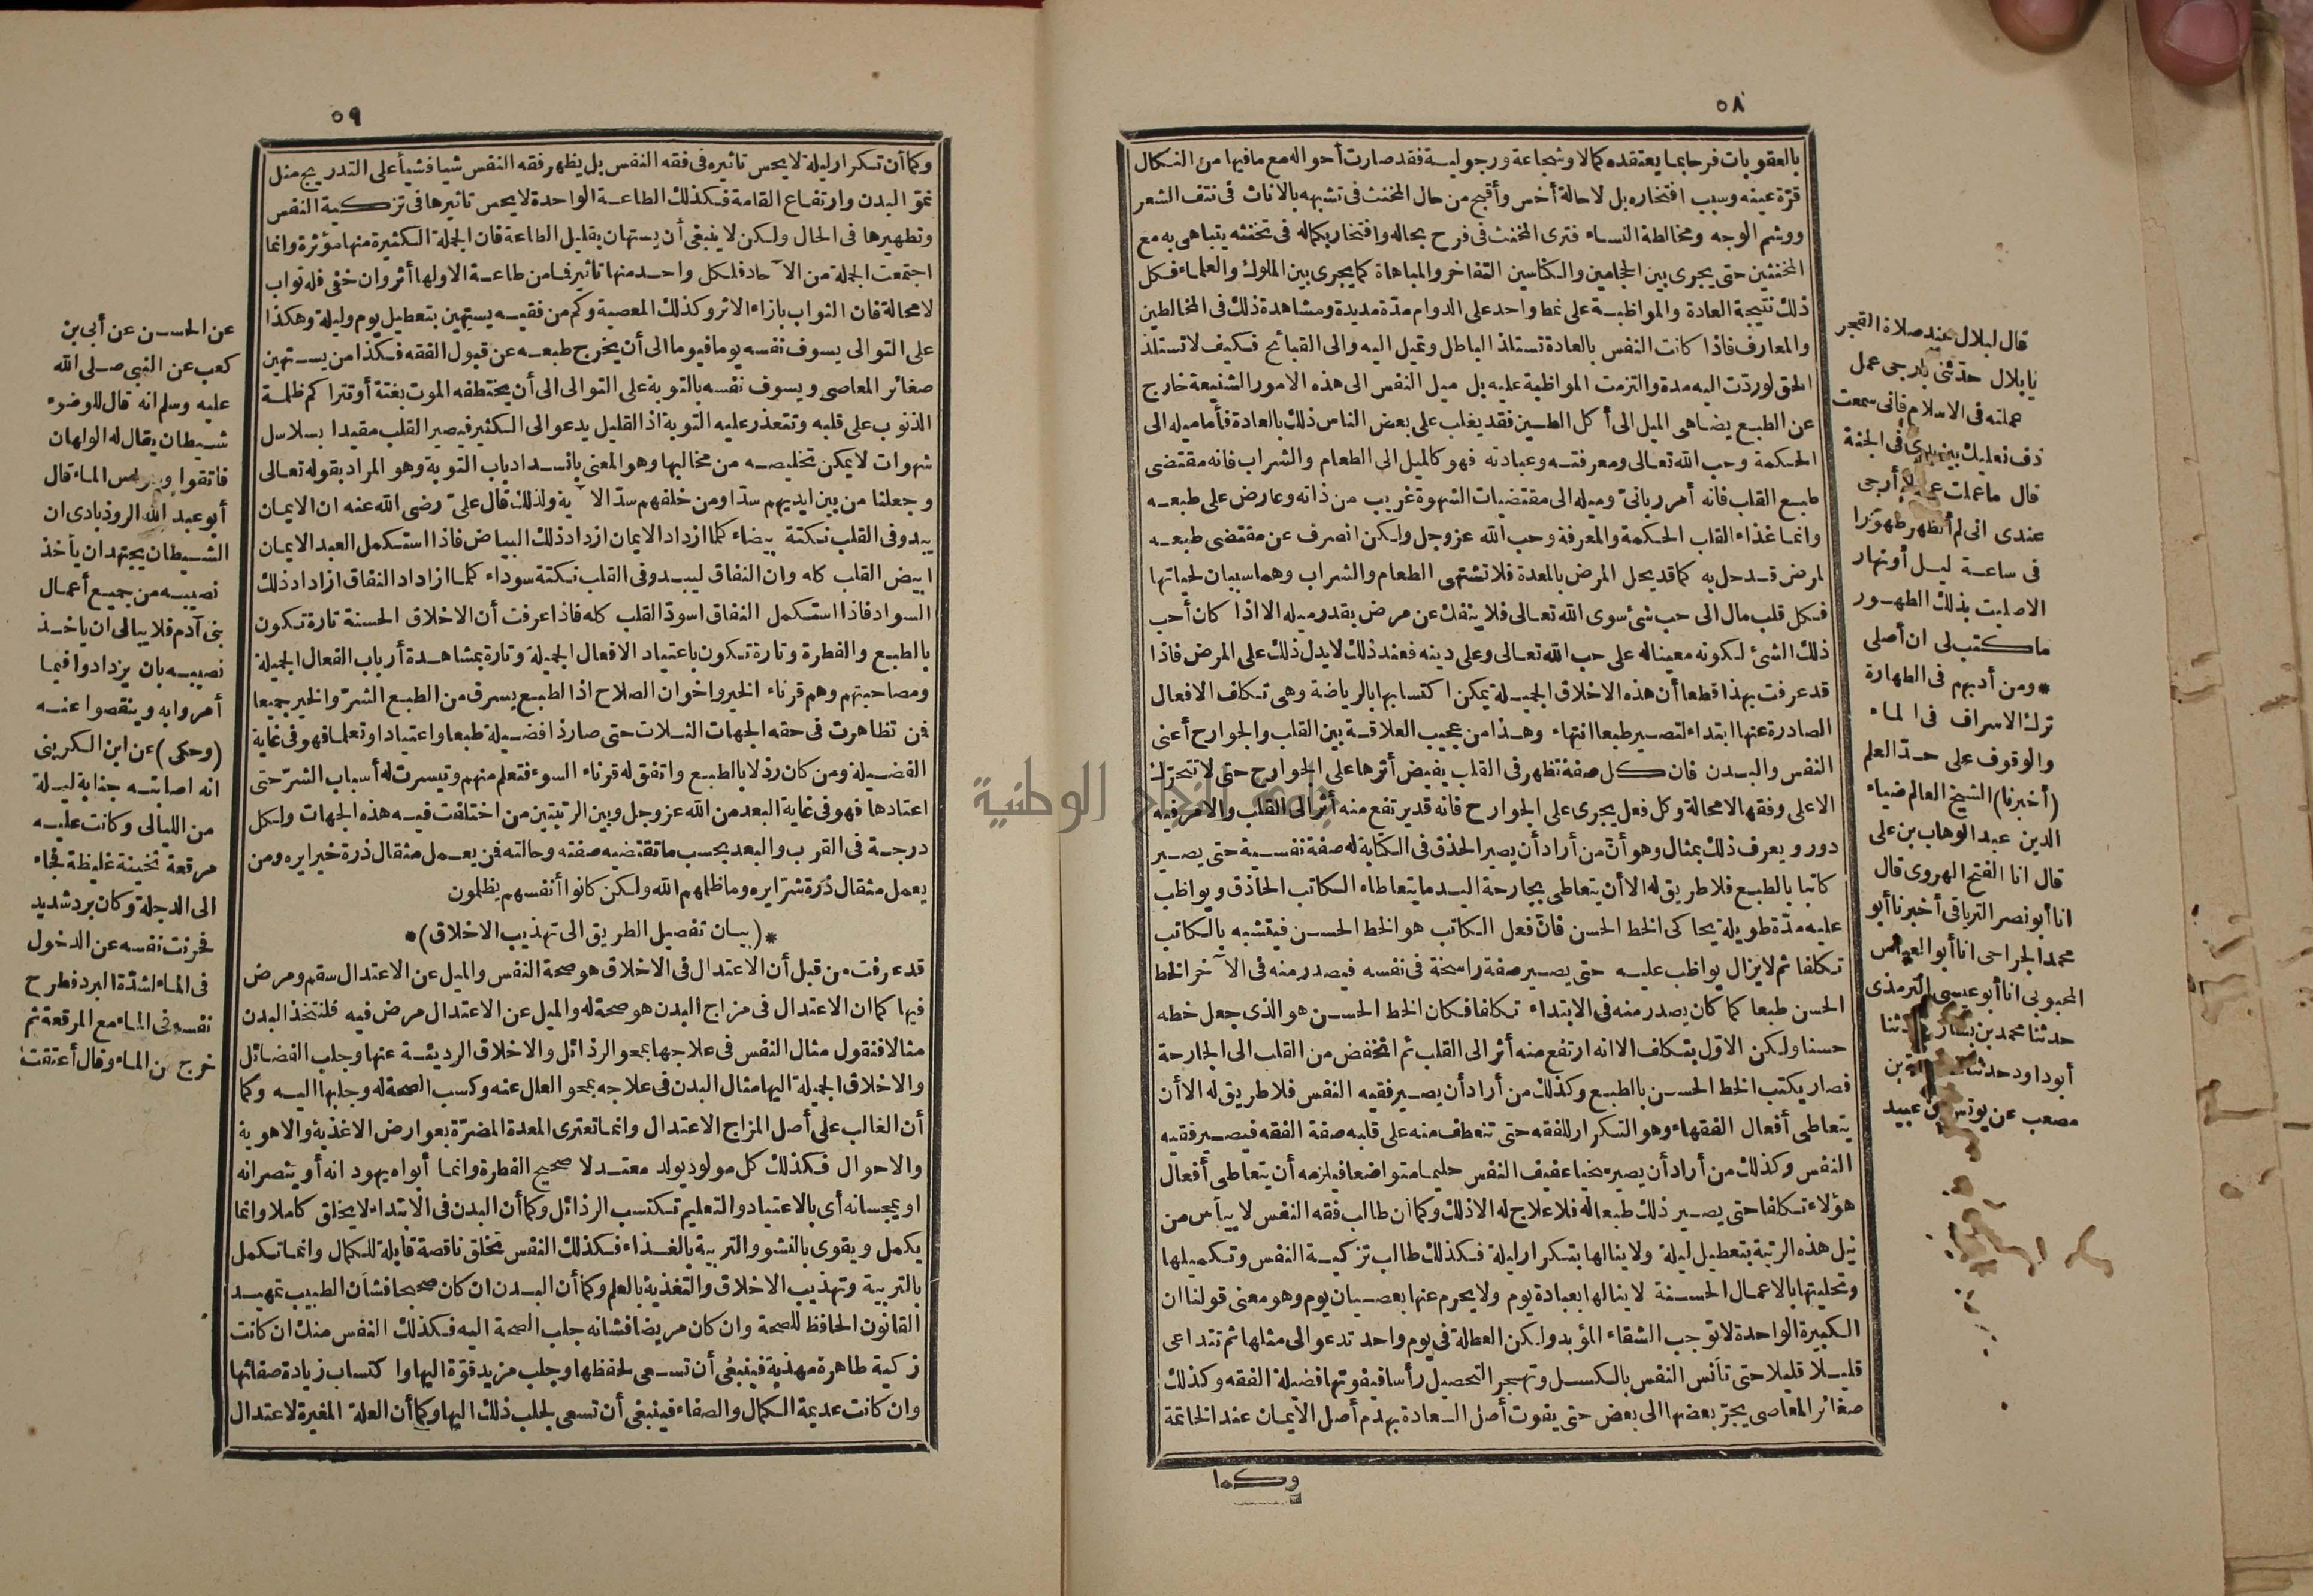 ٥٨
بالعقوبات فرحا بما يعتقده كمالا وشجاعة ورجولية فقد صارت أحواله مع ما فيها من النكال
قرّة عينه وسبب افتخاره بل لا حالة أخس وأقبح من حال المخنث فى تشبهه بالاناث فى نتف الشعر
ووشم الوجه ومخالطة النساء فترى المخنث فى فرح بحاله وافتخار بكماله فى تخنثه يتباهى به مع
المخنثين حتى يجرى بين الحجامين والكناسين التفاخر والمباهاة كما يجرى بين الملوك والعلماء فكل
ذلك نتيجة العادة والمواظبة على نمط واحد على الدوام مدّة مديدة ومشاهدة ذلك فى المخالطين
والمعارف فاذا كانت النفس بالعادة تستلذ الباطل وتميل اليه والى القبائح فكيف لا تستلذ
الحق لو ردّت اليه مدة والتزمت المواظبة عليه بل ميل النفس الى هذه الامور الشنيعة خارج
عن الطبع يضاهى الميل الى أكل الطين فقد يغلب على بعض الناس ذلك بالعادة فأما ميله الى
الحكمة وحب الله تعالى ومعرفته وعبادته فهو كالميل الى الطعام والشراب فانه مقتضى
طبع القلب فانه أمر ربانىّ وميله الى مقتضيات الشهوة غريب من ذاته وعارض على طبعه
وانما غذاء القلب الحكمة والمعرفة وحب الله عز وجل ولكن انصرف عن مقتضى طبعه
لمرض قد حل به كما قد يحل المرض بالمعدة فلا تشتهى الطعام والشراب وهما سببان لحياتها
فكل قلب مال الى حب شئ سوى الله تعالى فلا ينفك عن مرض بقدر ميله الا اذا كان أحب
ذلك الشئ لكونه معينا له على حب الله تعالى وعلى دينه فعند ذلك لا يدل ذلك على المرض فاذا
قد عرفت بهذا قطعا أن هذه الاخلاق الجميلة يمكن اكتسابها بالرياضة وهى تكلف الافعال
الصادرة عنها ابتداء لتصير طبعا انتهاء وهذا من عجيب العلاقة بين القلب والجوارح أعنى
النفس والبدن فان كل صفة تظهر فى القلب يفيض أثرها على الجوارح حتى لا تتحرّك
الا على وفقها لا محالة وكل فعل يجرى على الجوارح فانه قد يرتفع منه أثر الى القلب والامر فيه
دور ويعرف ذلك بمثال وهو أنّ من أراد أن يصير الحذق فى الكتابة له صفة نفسية حتى يصير
كاتبا بالطبع فلا طريق له الا أن يتعاطى بجارحة اليد ما يتعاطاه الكاتب الحاذق ويواظب
عليه مدّة طويلة يحاكى الخط الحسن فانّ فعل الكاتب هو الخط الحسن فيتشبه بالكاتب
تكلفا ثم لا يزال يواظب عليه حتى يصير صفة راسخة فى نفسه فيصدر منه فى الآخر الخط
الحسن طبعا كما كان يصدر منه فى الابتداء تكلفا فكان الخط الحسن هو الذى جعل خطه
حسنا ولكن الاوّل بتكلف الا انه ارتفع منه أثر الى القلب ثم انخفض من القلب الى الجارحة
فصار يكتب الخط الحسن بالطبع وكذلك من أراد أن يصير فقيه النفس فلا طريق له الا أن
يتعاطى أفعال الفقهاء وهو التكرار للفقه حتى تنعطف منه على قلبه صفة الفقه فيصير فقيه
النفس وكذلك من أراد أن يصير سخيا عفيف النفس حليما متواضعا فيلزمه أن يتعاطى أفعال
هؤلاء تكلفا حتى يصير ذلك طبعا له فلا علاج له الا ذلك وكما أن طالب فقه النفس لا ييأس من
نيل هذه الرتبة بتعطيل ليلة ولا ينالها بتكرار ليلة فكذلك طالب تزكية النفس وتكميلها
وتحليتها بالاعمال الحسنة لا ينالها بعبادة يوم ولا يحرم عنها بعصيان يوم وهو معنى قولنا ان
الكبيرة الواحدة لا توجب الشقاء المؤبد ولكن العطلة فى يوم واحد تدعو الى مثلها ثم تتداعى
قليلا قليلا حتى تأنس النفس بالكسل وتهجر التحصيل رأسا فيفوتها فضيلة الفقه وكذلك
صغائر المعاصى يجرّ بعضها الى بعض حتى يفوت أصل السعادة بهدم أصل الايمان عند الخاتمة
وكما
قال لبلال عند صلاة الفجر
يا بلال حدّثنى بأرجى عمل
عملته فى الاسلام فانى سمعت
دف نعليك بين يدى فى الجنة
قال ما عملت عملا أرجى
عندى انى لم أتطهر طهورا
فى ساعة ليل أو نهار
الا صليت بذلك الطهور
ما كتب لى ان أصلى
* ومن أدبهم فى الطهارة
ترك الاسراف فى الماء
والوقوف على حدّ العلم
(أخبرنا) الشيخ العالم ضياء
الدين عبد الوهاب بن على
قال انا الفتح الهروى قال
انا أبو نصر الترياقى أخبرنا أبو
محمد الجراحى انا أبو العباس
المحبوبى انا أبو عيسى الترمذى
حدثنا محمد بن بشار حدثنا
أبو داود حدثنا بن
مصعب عن يونس بن عبيد
٥٩
وكما أن تكرار ليلة لا يحس تأثيره فى فقه النفس بل يظهر فقه النفس شيأ فشيأ على التدريج مثل
نموّ البدن وارتفاع القامة فكذلك الطاعة الواحدة لا يحس تأثيرها فى تزكية النفس
وتطهيرها فى الحال ولكن لا ينبغى أن يستهان بقليل الطاعة فان الجملة الكثيرة منها مؤثرة وانما
اجتمعت الجملة من الآحاد فلكل واحد منها تأثير فما من طاعة الا ولها أثر وان خفى فله ثواب
لا محالة فان الثواب بازاء الاثر وكذلك المعصية وكم من فقيه يستهين بتعطيل يوم وليلة وهكذا
على التوالى يسوف نفسه يوما فيوما الى أن يخرج طبعه عن قبول الفقه فكذا من يستهين
صغائر المعاصى ويسوف نفسه بالتوبة على التوالى الى أن يختطفه الموت بغتة أو تتراكم ظلمة
الذنوب على قلبه وتتعذر عليه التوبة اذ القليل يدعو الى الكثير فيصير القلب مقيدا بسلاسل
شهوات لا يمكن تخليصه من مخالبها وهو المعنى بانسداد باب التوبة وهو المراد بقوله تعالى
وجعلنا من بين ايديهم سدّا ومن خلفهم سدّا الآية ولذلك قال علىّ رضى الله عنه ان الايمان
يبدو فى القلب نكتة بيضاء كلما ازداد الايمان ازداد ذلك البياض فاذا استكمل العبد الايمان
ابيض القلب كله وان النفاق ليبدو فى القلب نكتة سوداء كلما ازداد النفاق ازداد ذلك
السواد فاذا استكمل النفاق اسودّ القلب كله فاذا عرفت أن الاخلاق الحسنة تارة تكون
بالطبع والفطرة وتارة تكون باعتياد الافعال الجميلة وتارة بمشاهدة أرباب الفعال الجميلة
ومصاحبتهم وهم قرناء الخير واخوان الصلاح اذ الطبع يسرق من الطبع الشرّ والخير جميعا
فمن تظاهرت فى حقه الجهات الثلاث حتى صار ذا فضيلة طبعا واعتيادا وتعلما فهو فى غاية
الفضيلة ومن كان رذلا بالطبع واتفق له قرناء السوء فتعلم منهم وتيسرت له أسباب الشرّ حتى
اعتادها فهو فى غاية البعد من الله عز وجل وبين الرتبتين من اختلفت فيه هذه الجهات ولكل
درجة فى القرب والبعد بحسب ما تقتضيه صفته وحالته فمن يعمل مثقال ذرة خيرا يره ومن
يعمل مثقال ذرة شرّا يره وما ظلمهم الله ولكن كانوا أنفسهم يظلمون
*(بيان تفصيل الطريق الى تهذيب الاخلاق)*
قد عرفت من قبل أن الاعتدال فى الاخلاق هو صحة النفس والميل عن الاعتدال سقم ومرض
فيها كما ان الاعتدال فى مزاج البدن هو صحة له والميل عن الاعتدال مرض فيه فلنتخذ البدن
مثالا فنقول مثال النفس فى علاجها بمحو الرذائل والاخلاق الرديئة عنها وجلب الفضائل
والاخلاق الجميلة اليها مثال البدن فى علاجه بمحو العلل عنه وكسب الصحة له وجلبها اليه وكما
أن الغالب على أصل المزاج الاعتدال وانما تعترى المعدة المضرّة بعوارض الاغذية والاهوية
والاحوال فكذلك كل مولود يولد معتدلا صحيح الفطرة وانما أبواه يهودانه أو ينصرانه
او يمجسانه أى بالاعتياد والتعليم تكتسب الرذائل وكما أن البدن فى الابتداء لا يخلق كاملا وانما
يكمل ويقوى بالنشو والتربية بالغذاء فكذلك النفس تخلق ناقصة قابلة للكمال وانما تكمل
بالتربية وتهذيب الاخلاق والتغذية بالعلم وكما أن البدن ان كان صحيحا فشأن الطبيب تمهيد
القانون الحافظ للصحة وان كان مريضا فشانه جلب الصحة اليه فكذلك النفس منك ان كانت
زكية طاهرة مهذبة فينبغى أن تسعى لحفظها وجلب مزيد قوّة اليها واكتساب زيادة صفائها
وان كانت عديمة الكمال والصفاء فينبغى أن تسعى لجلب ذلك اليها وكما أن العلة المغيرة لاعتدال
عن الحسن عن أبى بن
كعب عن النبى صلى الله
عليه وسلم انه قال للوضوء
شيطان يقال له الولهان
فاتقوا وسواس الماء قال
أبو عبد الله الروذبادى ان
الشيطان يجتهد ان يأخذ
نصيبه من جميع أعمال
بنى آدم فلا يبالى ان ياخذ
نصيبه بان يزدادوا فيما
أمروا به وينقصوا عنه
(وحكى) عن ابن الكرينى
انه اصابته جنابة ليلة
من الليالى وكانت عليه
مرقعة ثخينة غليظة فجاء
الى الدجلة وكان برد شديد
فحرنت نفسه عن الدخول
فى الماء لشدّة البرد فطرح
نفسه فى الماء مع المرقعة ثم
خرج من الماء وقال أعتقت
جامعة النجاح الوطنية